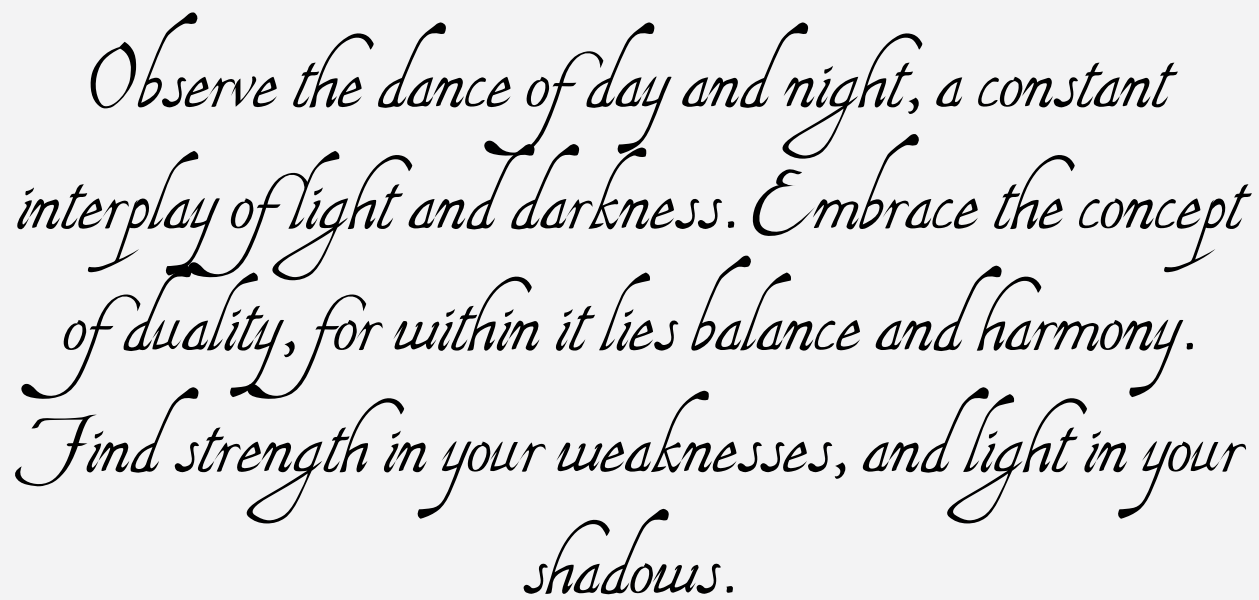 Observe the dance of day and night, a constant
interplay of light and darkness. Embrace the concept
of duality, for within it lies balance and harmony.
Find strength in your weaknesses, and light in your
shadows.